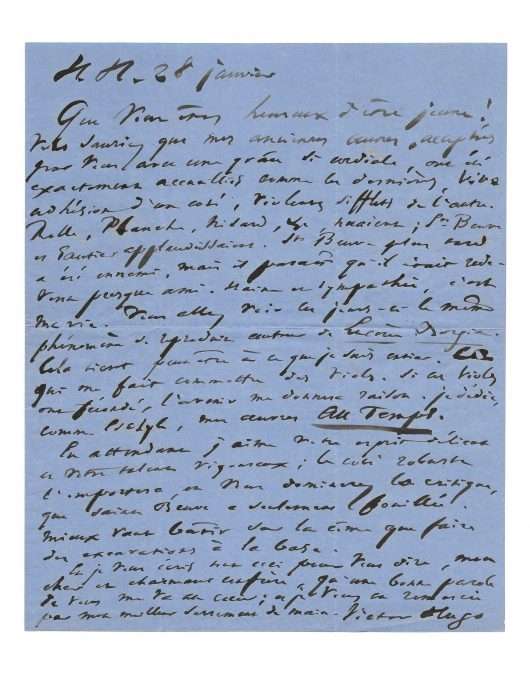 H. H. 28 janvier
Que vous êtes heureux d'être jeune !
Vous sauriez que mes anciennes œuvres, acceptées
par vous avec une grâce si cordiale, ont été
exactement accueillies comme les dernières. Vive
adhésion d'un côté, violens sifflets de l'autre.
Rolle, Planche, Nisard, &c huaient ; Ste Beuve
et Gautier applaudissaient. Ste Beuve plus tard
a été ennemi, mais il paraît qu'il était rede-
venu presque ami. Haine et sympathie, c'est
ma vie. Vous allez voir ces jours-ci le même
phénomène se reproduire autour de Lucrèce Borgia.
Cela tient peut-être à ce que je suis
qui me fait commettre des viols. Si ces viols
ont fécondé, l'avenir me donnera raison. je dédie,
comme Eschyle, mes œuvres Au Temps.
En attendant j'aime votre esprit délicat
et votre talent vigoureux ; le côté robuste
l'emportera, et vous dominerez la critique,
que Sainte Beuve a seulement fouillé.
Mieux vaut bâtir sur la cime que faire
des excavations à la base.
Et je vous écris tout ceci pour vous dire, mon
cher et charmant confrère, qu'une bonne parole
de vous me va au cœur ; et je vous en remercie
par mon meilleur serrement de main. Victor Hugo